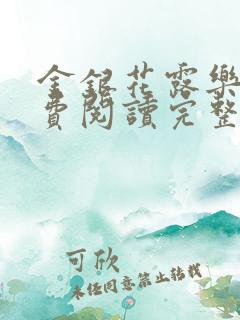 金銀花露樂
費閱讀完整
可欣
未经同意禁止转载